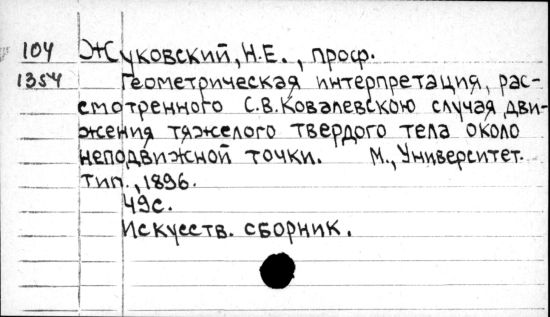 104 Жуковский, Н.Е., проф.
1354 Геометрическая интерпретация, рас-
смотренного С.В.Ковалевскою случая дви-
жения тяжелого твердого тела около
неподвижной точки. М., Университет.
тип., 1896.
49с.
Искусств. сборник.